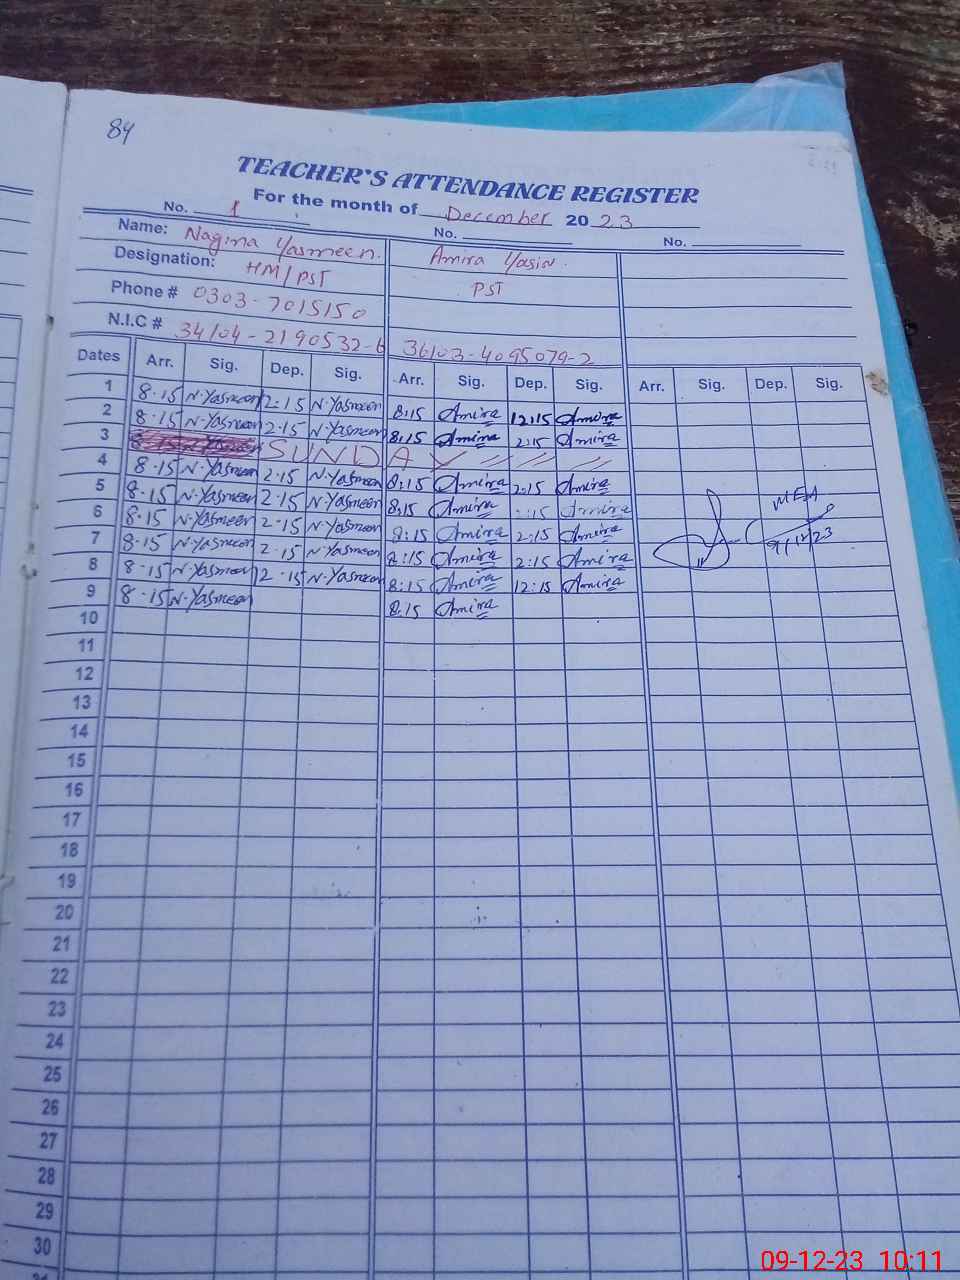 84
TEACHER'S ATTENDANCE REGISTER
For the month of December 20 23
No. 1 No. No.
Name: Nagina Yasmeen. Amira Yasin.
Designation: HM/PST PST
Phone # 0303-7015150
N.I.C # 34104-2190532-6 36103-4095079-2
Dates Arr. Sig. Dep. Sig. Arr. Sig. Dep. Sig. Arr. Sig. Dep. Sig.
1 8.15 N.Yasmeen 12.15 N.Yasmeen 8:15 Amira 12:15 Amira
2 8.15 N.Yasmeen 2.15 N.Yasmeen 8:15 Amira 2:15 Amira
3 SUNDAY
4 8.15 N.Yasmeen 2.15 N.Yasmeen 8:15 Amira 2:15 Amira
5 8.15 N.Yasmeen 2.15 N.Yasmeen 8:15 Amira :15 Amira
6 8.15 N.Yasmeen 2.15 N.Yasmeen 8:15 Amira 2:15 Amira
7 8.15 N.Yasmeen 2.15 N.Yasmeen 8:15 Amira 2:15 Amira
8 8.15 N.Yasmeen 12.15 N.Yasmeen 8:15 Amira 12:15 Amira
9 8.15 N.Yasmeen 8:15 Amira
MEA
9/12/23
10
11
12
13
14
15
16
17
18
19
20
21
22
23
24
25
26
27
28
29
30
09-12-23 10:11